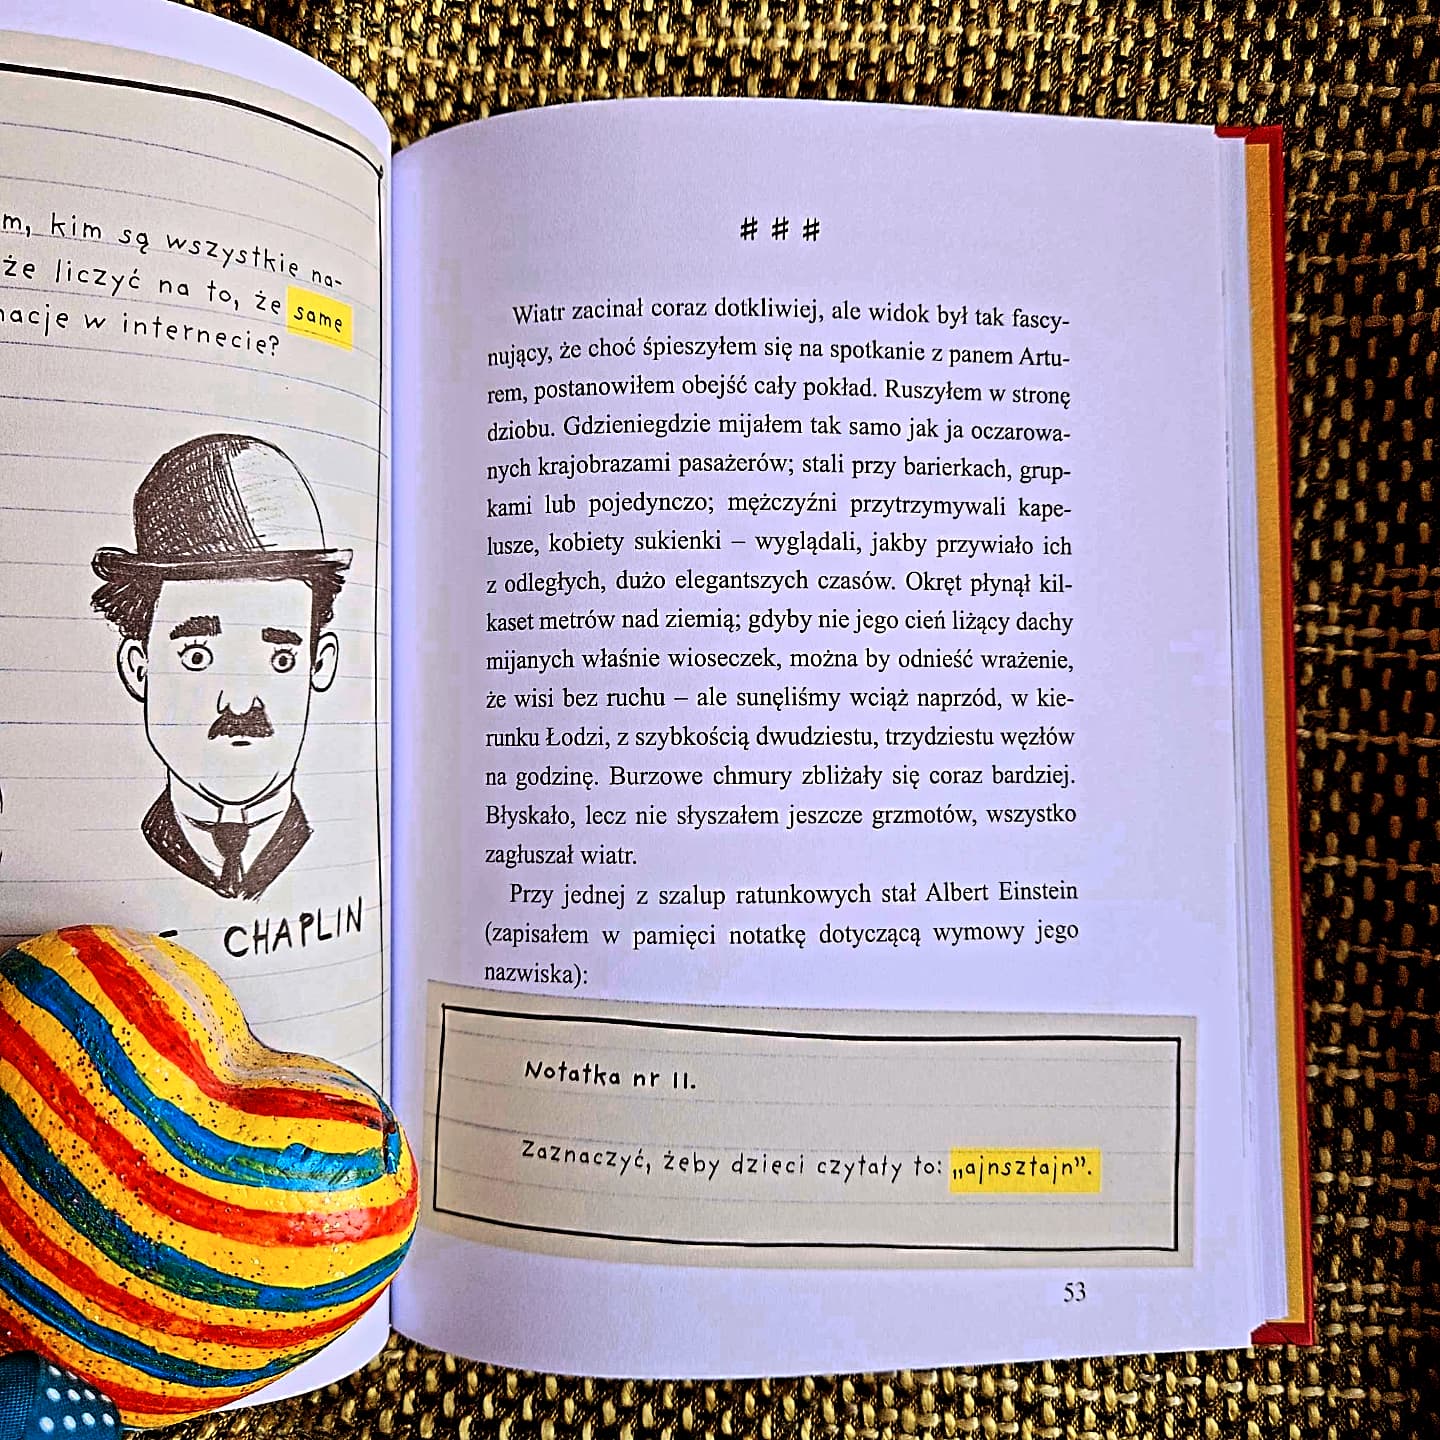 m, kim są wszystkie na-
że liczyć na to, że same
macje w internecie?
CHAPLIN
# # #
Wiatr zacinał coraz dotkliwiej, ale widok był tak fascy-
nujący, że choć śpieszyłem się na spotkanie z panem Artu-
rem, postanowiłem obejść cały pokład. Ruszyłem w stronę
dziobu. Gdzieniegdzie mijałem tak samo jak ja oczarowa-
nych krajobrazami pasażerów; stali przy barierkach, grup-
kami lub pojedynczo; mężczyźni przytrzymywali kape-
lusze, kobiety sukienki – wyglądali, jakby przywiało ich
z odległych, dużo elegantszych czasów. Okręt płynął kil-
kaset metrów nad ziemią; gdyby nie jego cień liżący dachy
mijanych właśnie wioseczek, można by odnieść wrażenie,
że wisi bez ruchu – ale sunęliśmy wciąż naprzód, w kie-
runku Łodzi, z szybkością dwudziestu, trzydziestu węzłów
na godzinę. Burzowe chmury zbliżały się coraz bardziej.
Błyskało, lecz nie słyszałem jeszcze grzmotów, wszystko
zagłuszał wiatr.
Przy jednej z szalup ratunkowych stał Albert Einstein
(zapisałem w pamięci notatkę dotyczącą wymowy jego
nazwiska):
Notatka nr 11.
Zaznaczyć, żeby dzieci czytały to: „ajnsztajn”.
53